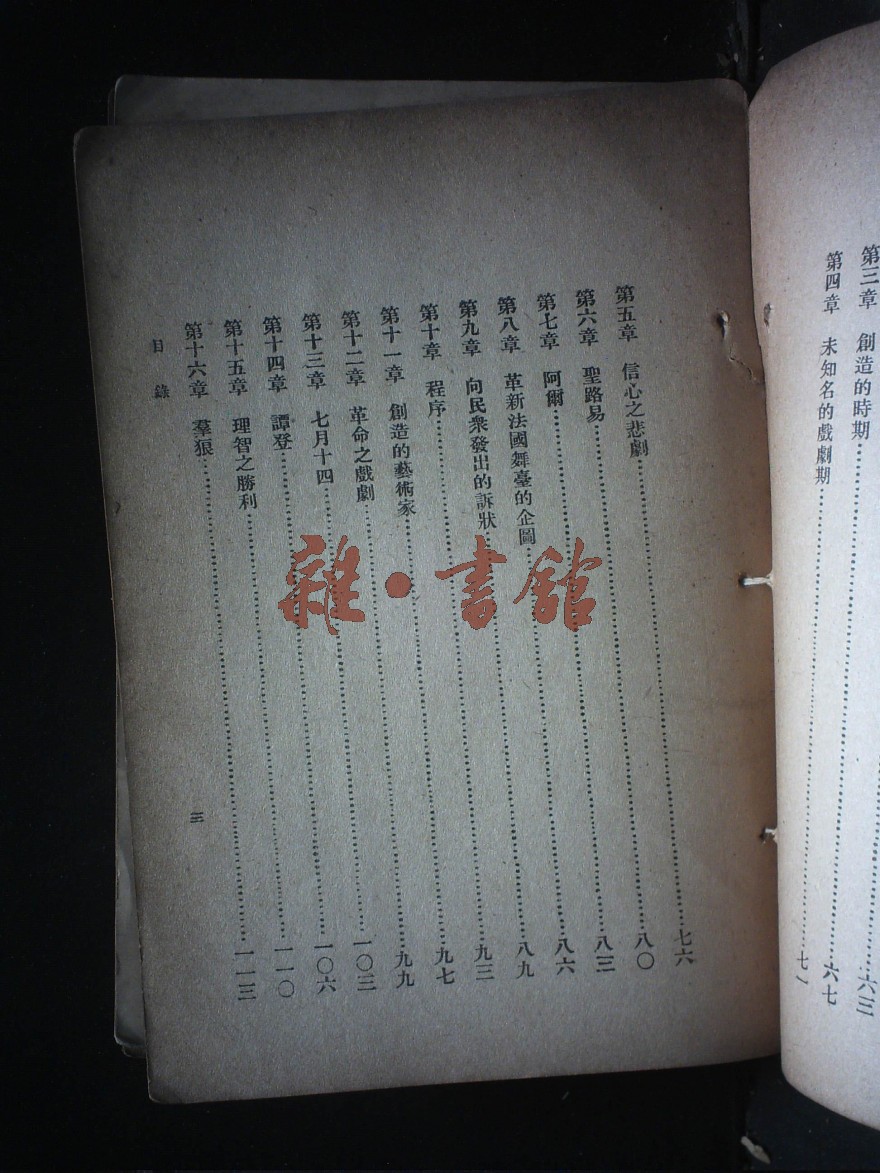 六三
第三章　創造的時期……六七
第四章　未知名的戲劇期……七一
第五章　信心之悲劇……七六
第六章　聖路易……八〇
第七章　阿爾……八三
第八章　革新法國舞臺的企圖……八六
第九章　向民衆發出的訴狀……八九
第十章　程序……九三
第十一章　創造的藝術家……九七
第十二章　革命之戲劇……九九
第十三章　七月十四……一〇三
第十四章　譚登……一〇六
第十五章　理智之勝利……一一〇
第十六章　羣狼……一一三
目錄
三
雜·書館